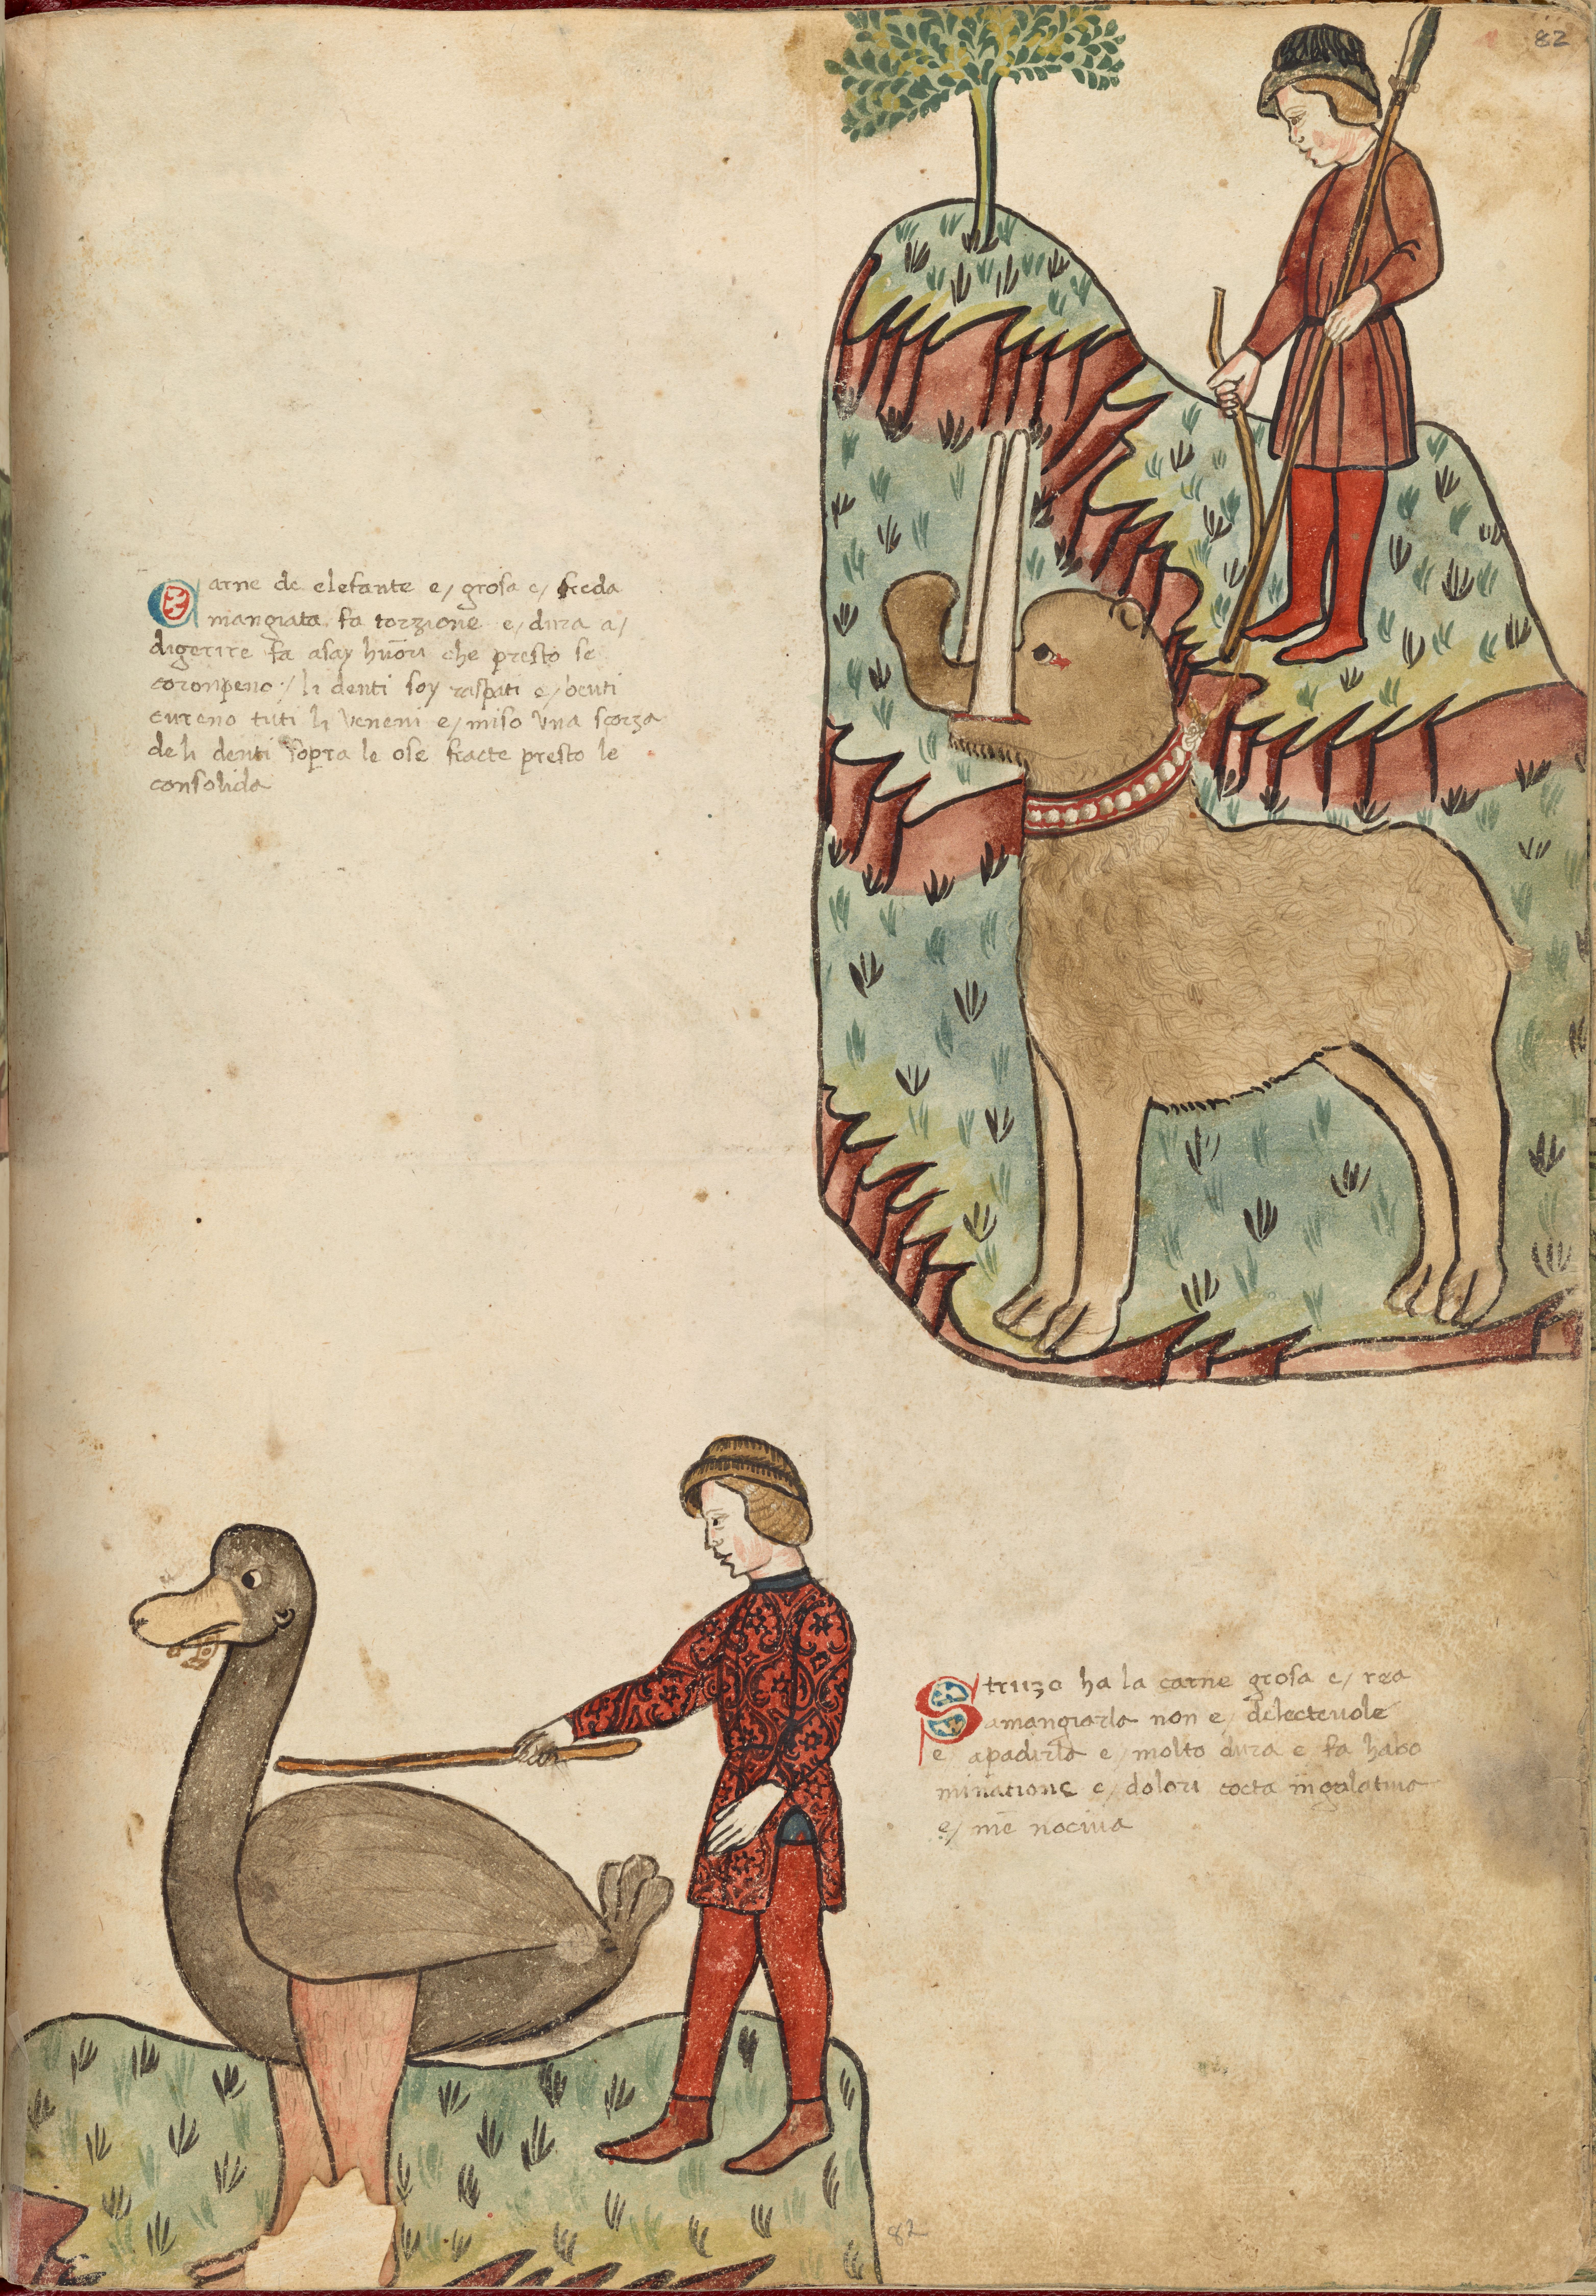 82
Carne de elefante e/ grosa e/ freda
mangiata fa torzione e/ dura a/
digerire fa asay huōri che presto se
coronpeno / li denti soy raspati e/ beuti
cureno tuti li veneni e/ miso vna scorza
de li denti sopra le ose fracte presto le
consolida
Struzo ha la carne grosa e/ rea
amangiarla non e/ delecteuole
e apadirla e/ molto dura e fa habo
minatione e/ dolori cocta in galatina
e/ mē nociua
82